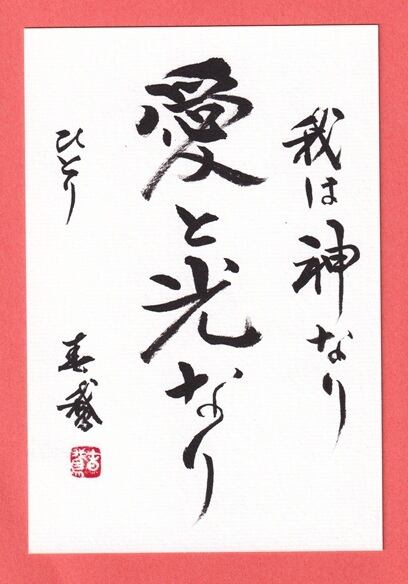 我は神なり
愛と光なり
ひとり
春鵞